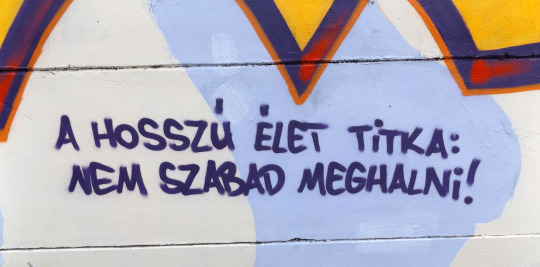 A HOSSZÚ ÉLET TiTKA:
NEM SZABAD MEGHALNi!